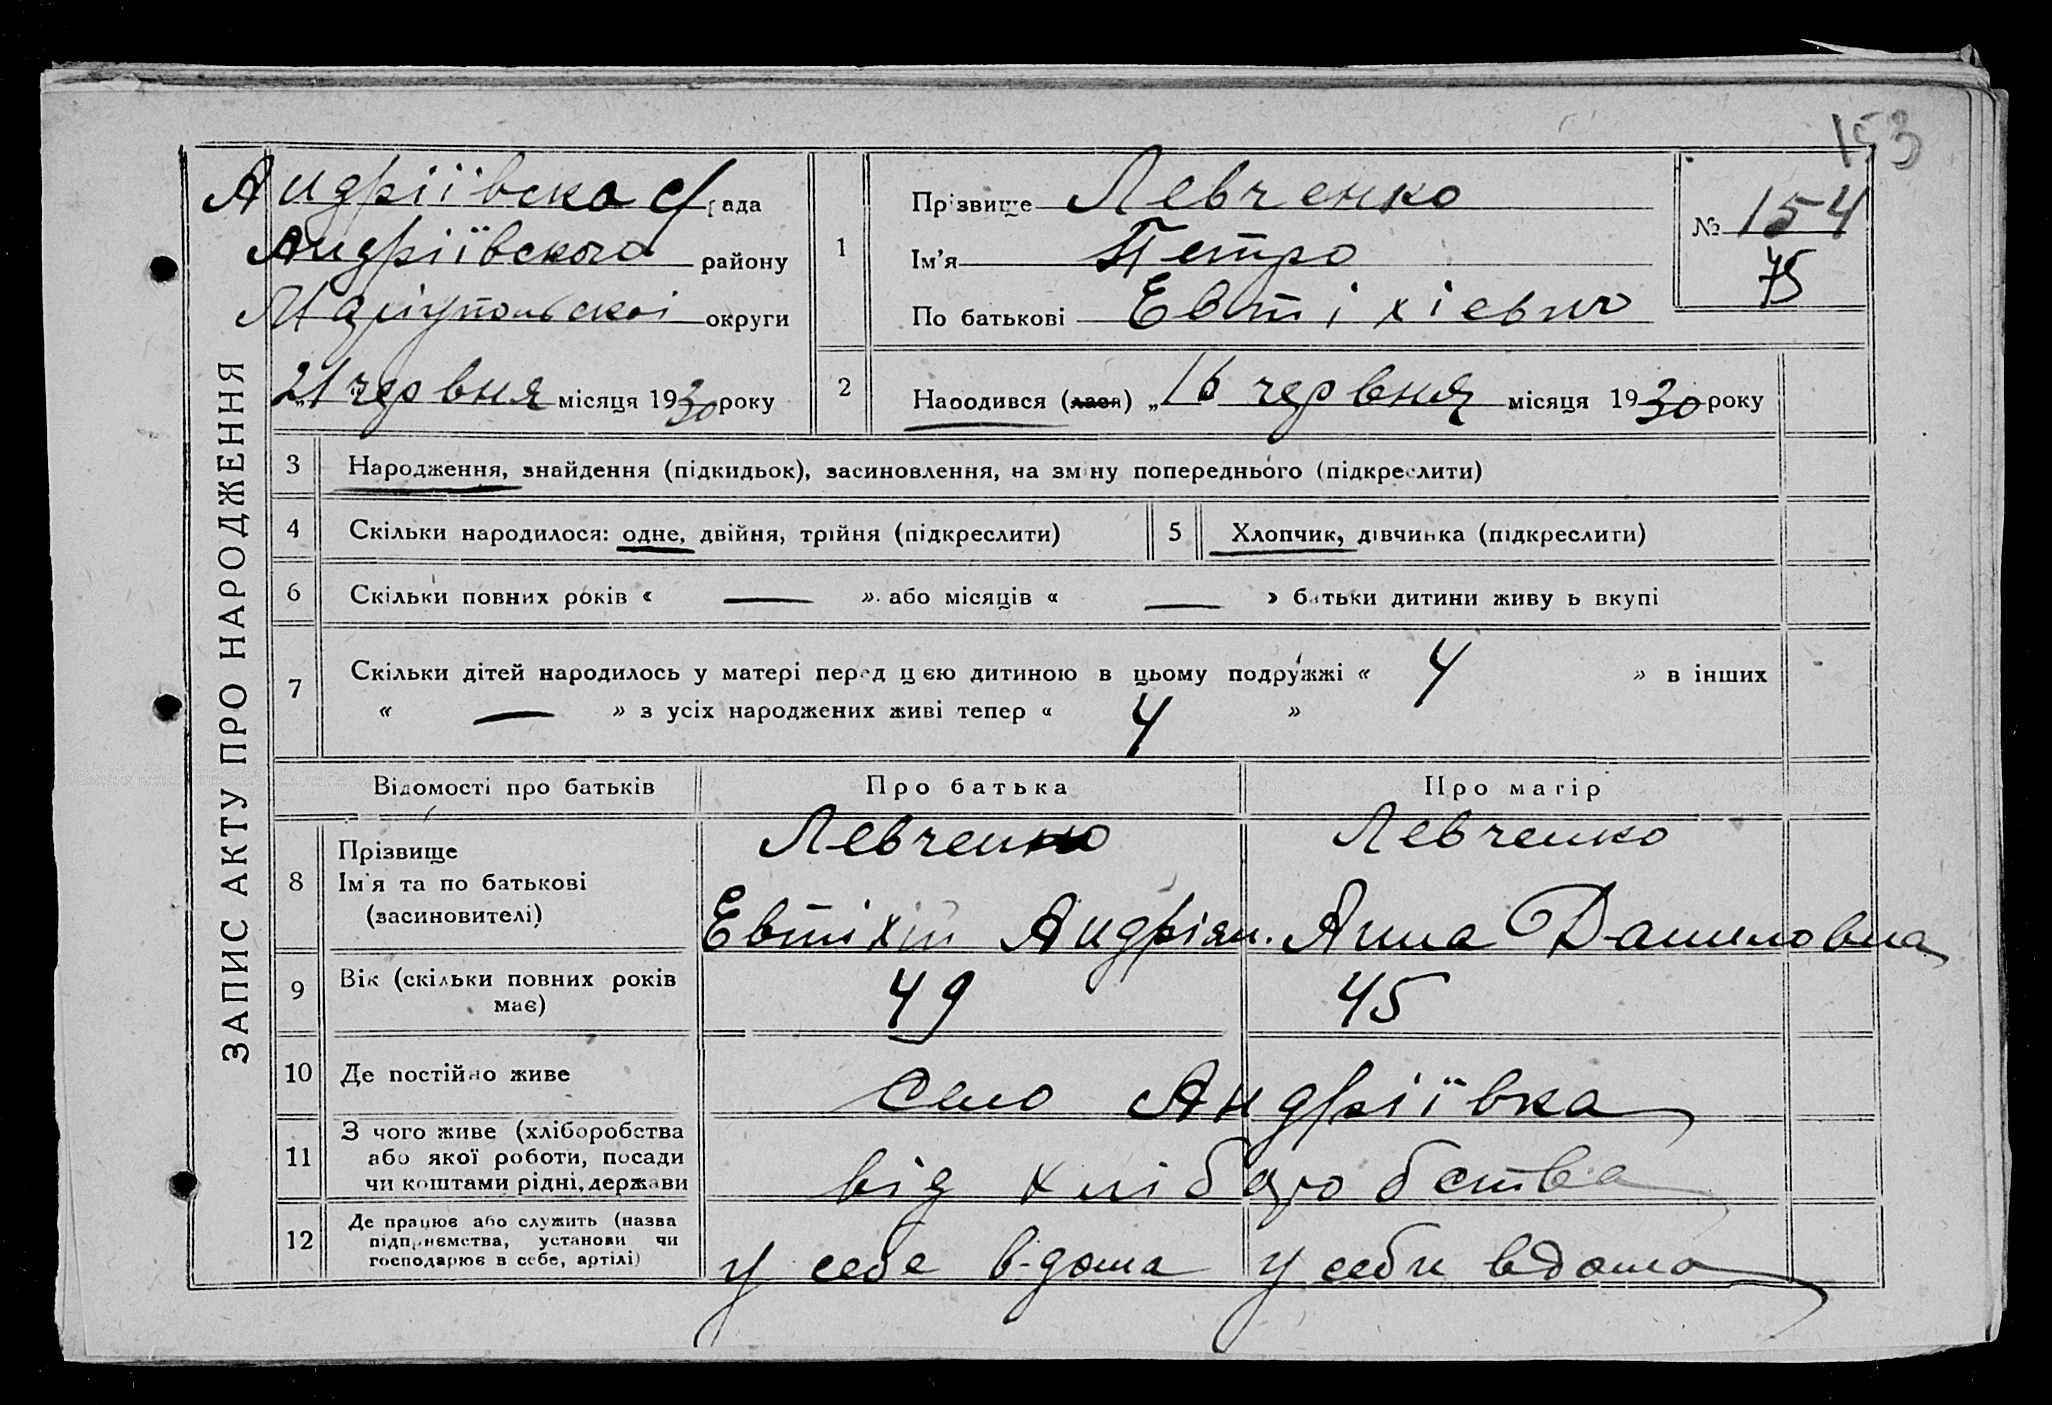 153
ЗАПИС АКТУ ПРО НАРОДЖЕННЯ
Андріївска с/рада
Андріївського району
Маріупольскоі округи
„21 червня місяця 1930 року
1
Прізвище Левченко
Ім'я Петро
По батькові Евтіхіевич
№ 154
75
2
Народився (лася) „16 червня місяця 1930 року
3 Народження, знайдення (підкидьок), засиновлення, на зміну попереднього (підкреслити)
4 Скільки народилося: одне, двійня, трійня (підкреслити) 5 Хлопчик, дівчинка (підкреслити)
6 Скільки повних років « — » або місяців « — » батьки дитини живуть вкупі
7 Скільки дітей народилось у матері перед цією дитиною в цьому подружжі « 4 » в інших
« — » з усіх народжених живі тепер « 4 »
Відомості про батьків Про батька Про матір
8 Прізвище
Ім'я та по батькові
(засиновителі)
Левченко
Евтіхій Андріян.
Левченко
Анна Даниловна
9 Вік (скільки повних років
має)
49 45
10 Де постійно живе село Андріївка
11 З чого живе (хліборобства
або якої роботи, посади
чи коштами рідні, держави
від хліборобства
12 Де працює або служить (назва
підприємства, установи чи
господарює в себе, артілі)
у себе в-дома у себи вдома